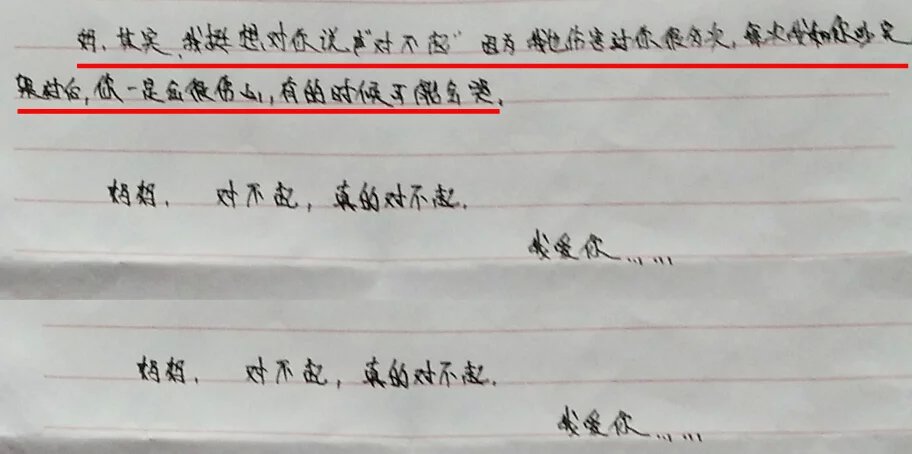 妈，其实，我挺想对你说声“对不起”因为我也伤害过你很多次，每次我和你吵完
架过后，你一定会很伤心，有的时候可能会哭，
妈妈，对不起，真的对不起，
我爱你……
妈妈，对不起，真的对不起，
我爱你……